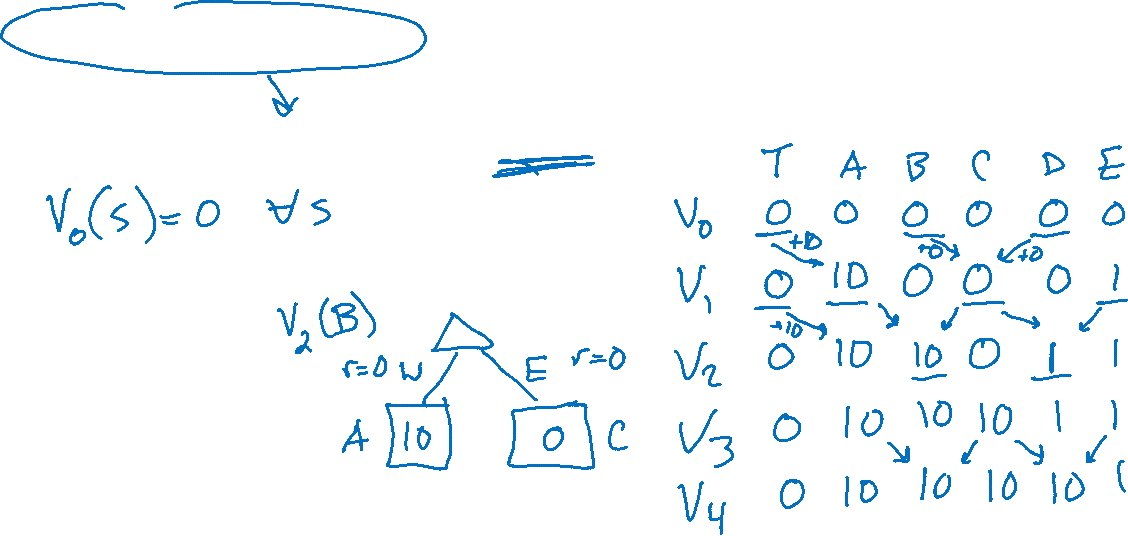 V₀(S) = 0 ∀ S
V₂(B)
r=0 W E r=0
A 10 0 C
T A B C D E
V₀ 0 0 0 0 0 0
+10 +0 +0
V₁ 0 10 0 0 0 1
+10
V₂ 0 10 10 0 1 1
V₃ 0 10 10 10 1 1
V₄ 0 10 10 10 10